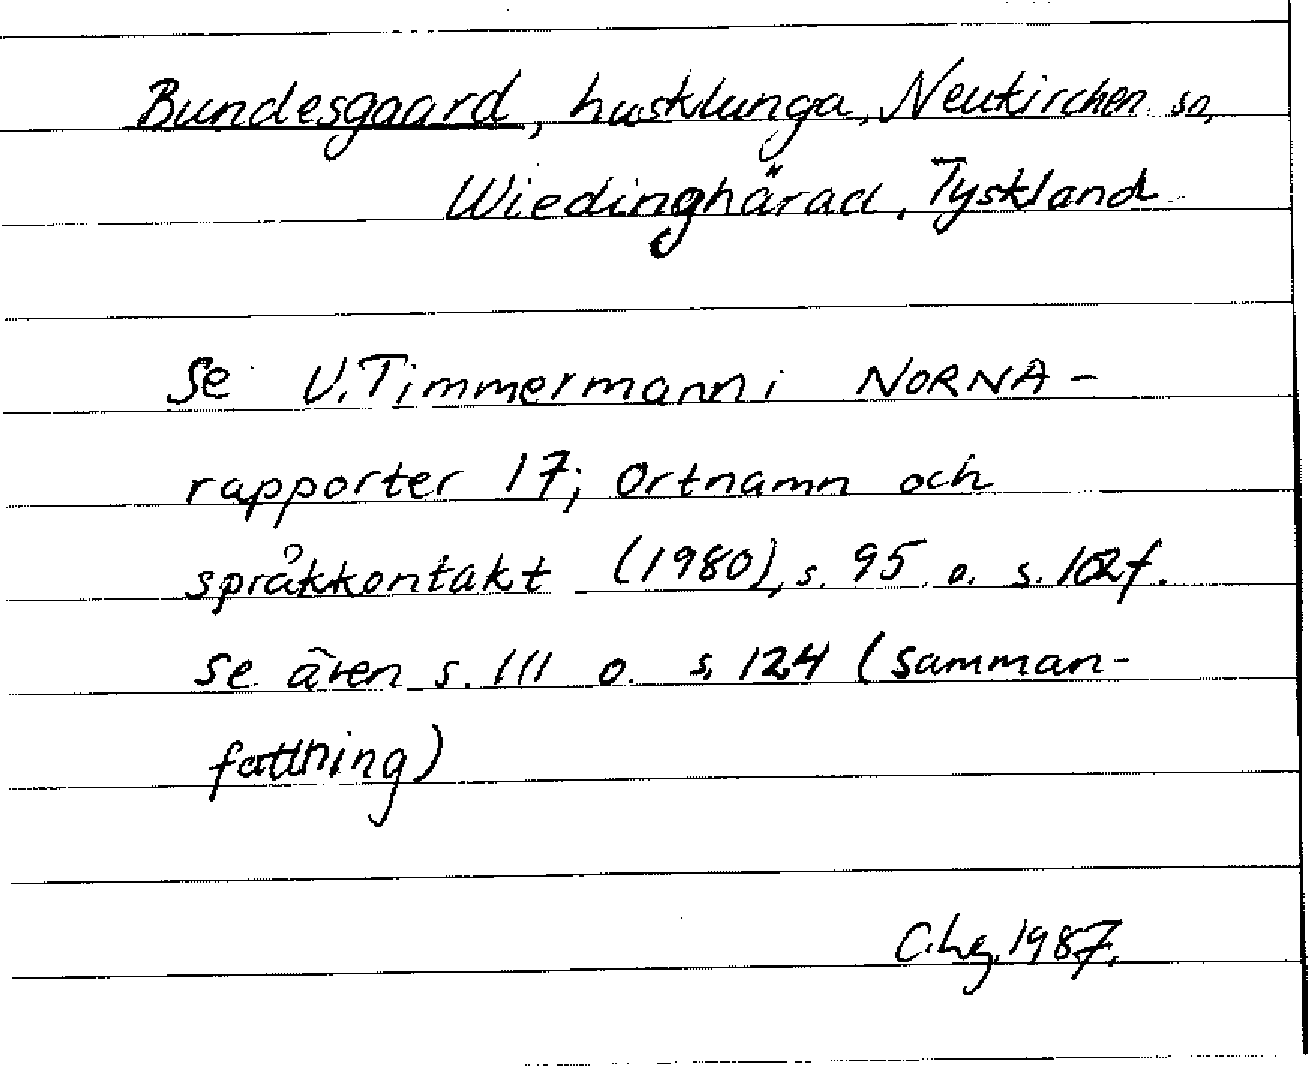 Bundesgaard, husklunga, Neukirchen sn,
Wiedinghärad, Tyskland
Se U. Timmermann i NORNA-
rapporter 17; Ortnamn och
språkkontakt (1980), s. 95 o. s. 102f.
Se även s. 111 o. s. 124 (samman-
fattning)
C.Lg. 1987.